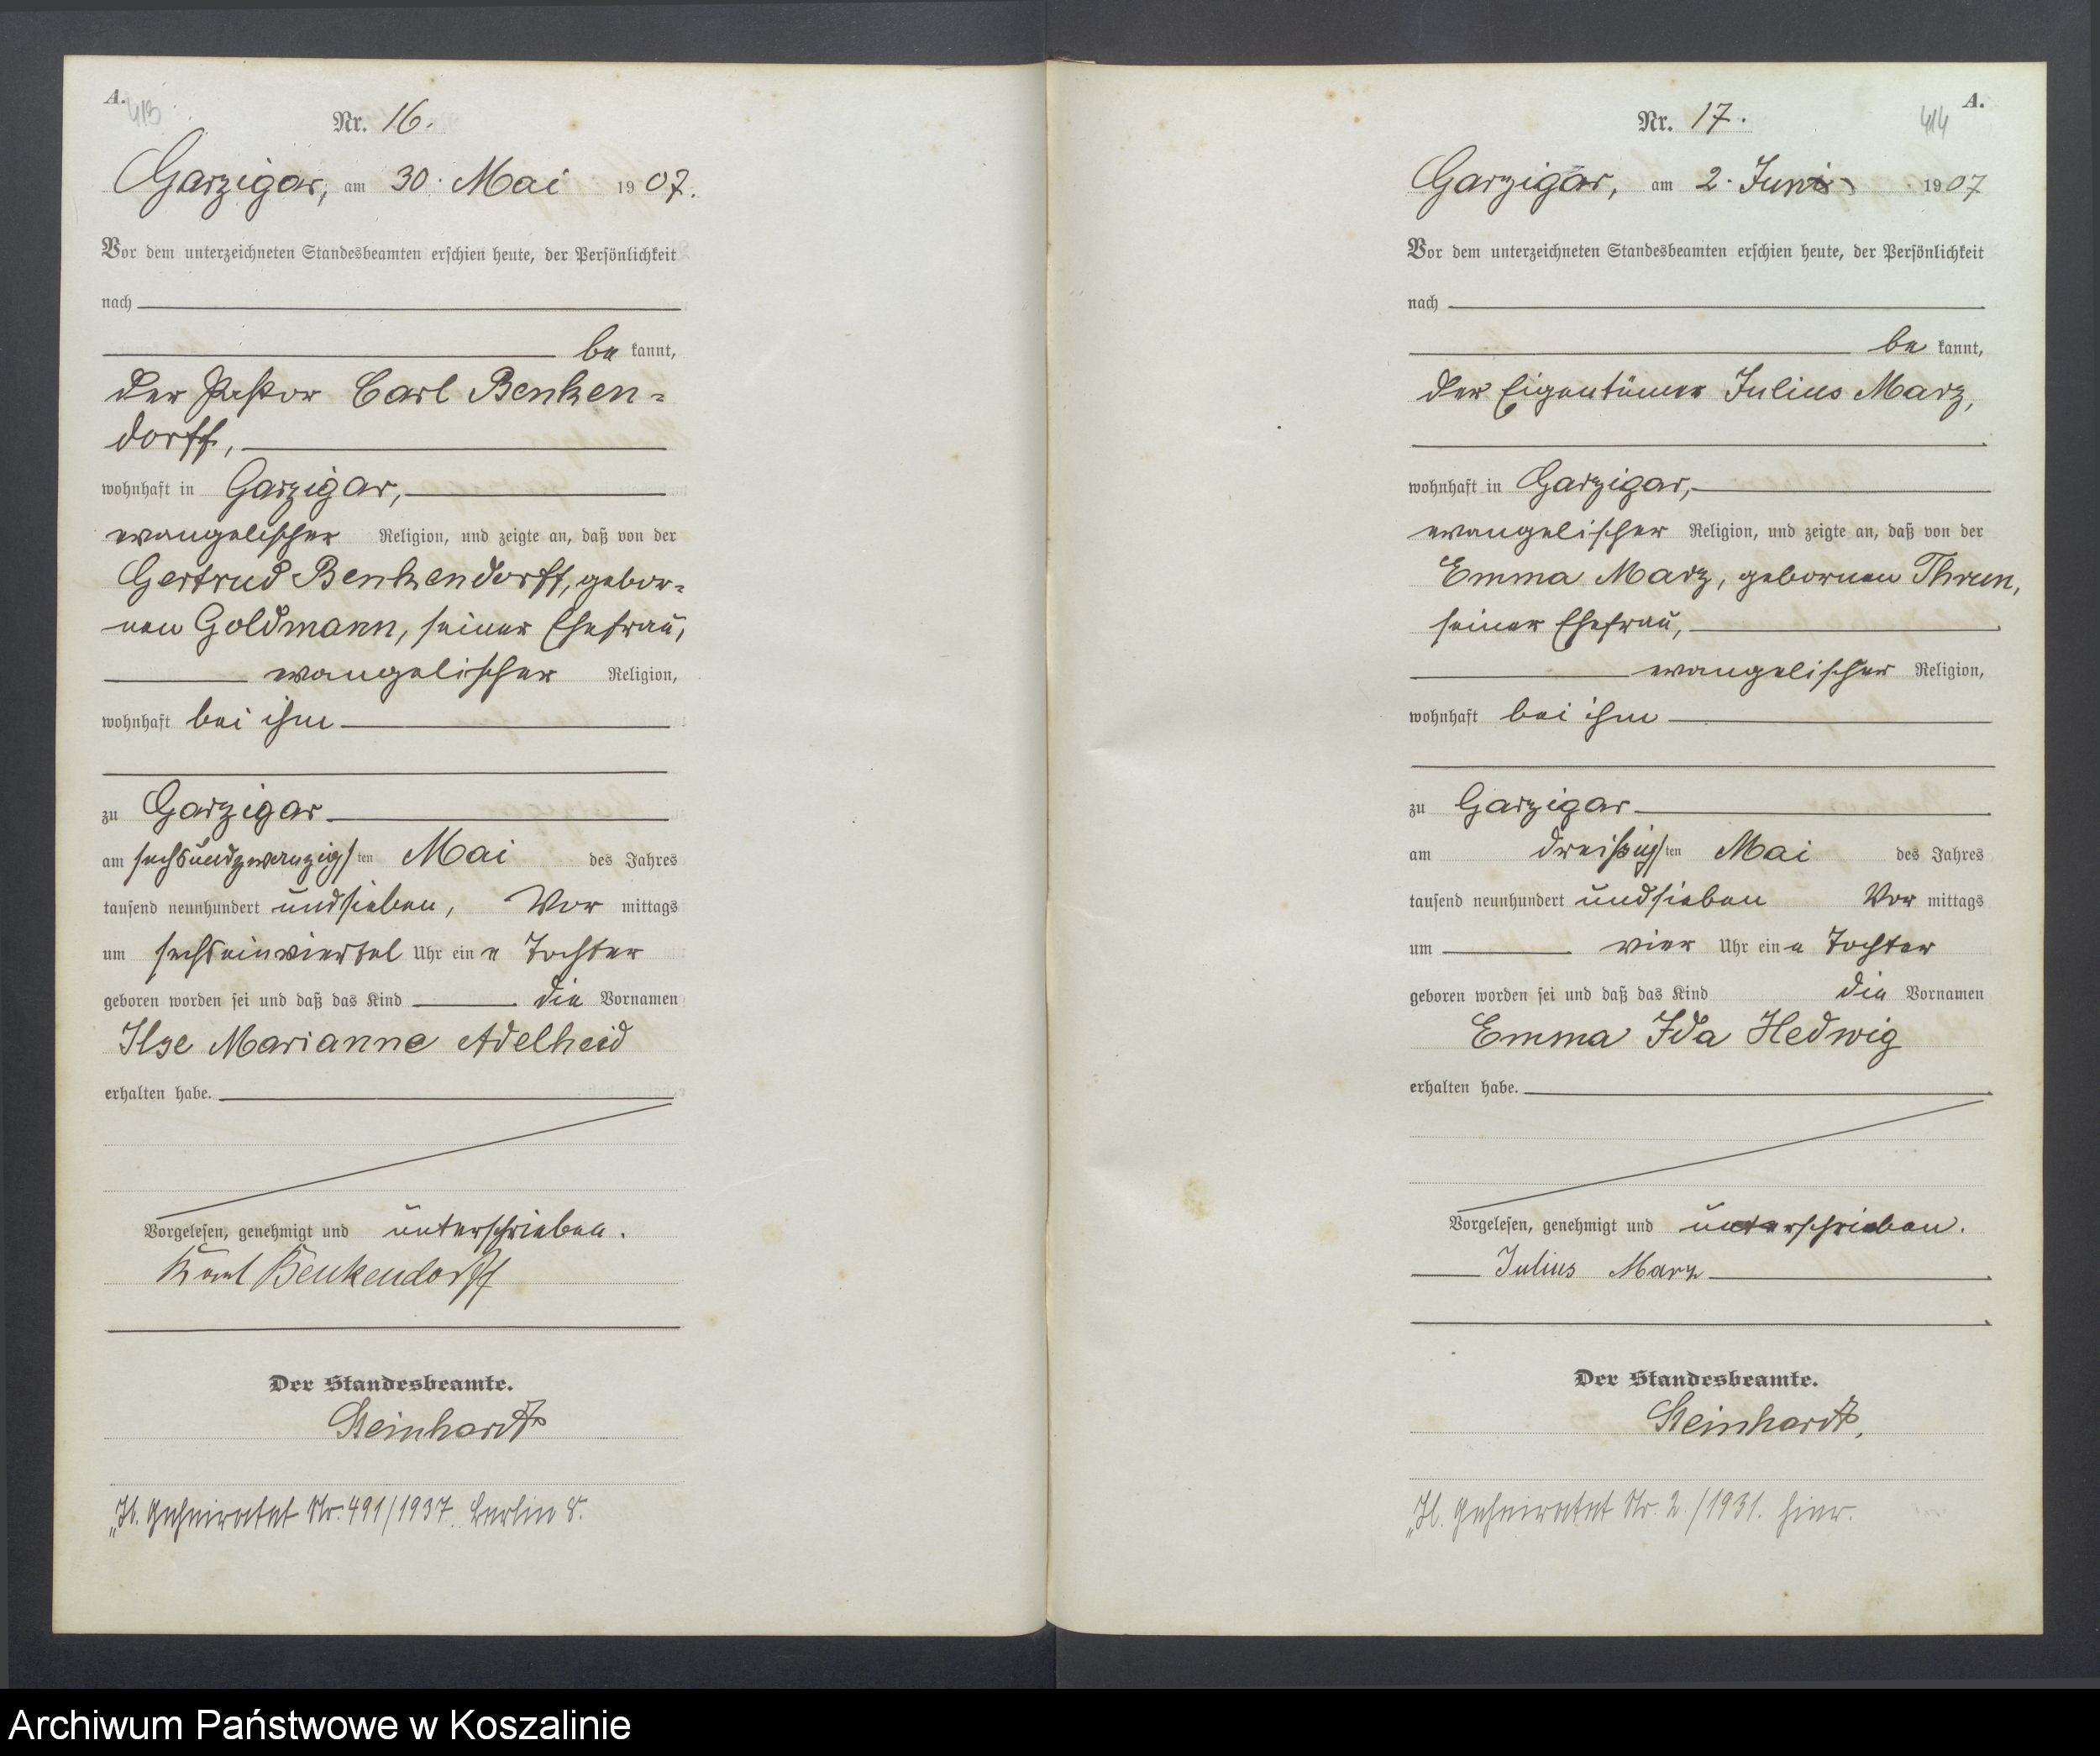 A.
413
Nr. 16.
Garzigar, am 30. Mai 1907.
Vor dem unterzeichneten Standesbeamten erschien heute, der Persönlichkeit
nach
be kannt,
der Pastor Carl Benken-
dorff,
wohnhaft in Garzigar,
evangelischer Religion, und zeigte an, daß von der
Gertrud Benkendorff, gebor-
nen Goldmann, seiner Ehefrau,
evangelischer Religion,
wohnhaft bei ihm
zu Garzigar
am sechsundzwanzigsten Mai des Jahres
tausend neunhundert und sieben, Vor mittags
um sechseinviertel Uhr eine Tochter
geboren worden sei und daß das Kind die Vornamen
Ilse Marianne Adelheid
erhalten habe.
Vorgelesen, genehmigt und unterschrieben.
Karl Benkendorff
Der Standesbeamte.
Steinhardt
"Kl. Geheiratet Nr. 491/1937. Berlin 8.
A.
414
Nr. 17.
Garzigar, am 2. Juni 1907
Vor dem unterzeichneten Standesbeamten erschien heute, der Persönlichkeit
nach
be kannt,
der Eigentümer Julius Marz,
wohnhaft in Garzigar,
evangelischer Religion, und zeigte an, daß von der
Emma Marz, gebornen Thrun,
seiner Ehefrau,
evangelischer Religion,
wohnhaft bei ihm
zu Garzigar
am dreißigsten Mai des Jahres
tausend neunhundert und sieben Vor mittags
um vier Uhr eine Tochter
geboren worden sei und daß das Kind die Vornamen
Emma Ida Hedwig
erhalten habe.
Vorgelesen, genehmigt und unterschrieben.
Julius Marz
Der Standesbeamte.
Steinhardt.
"Kl. Geheiratet Nr. 2./1931. hier.
Archiwum Państwowe w Koszalinie